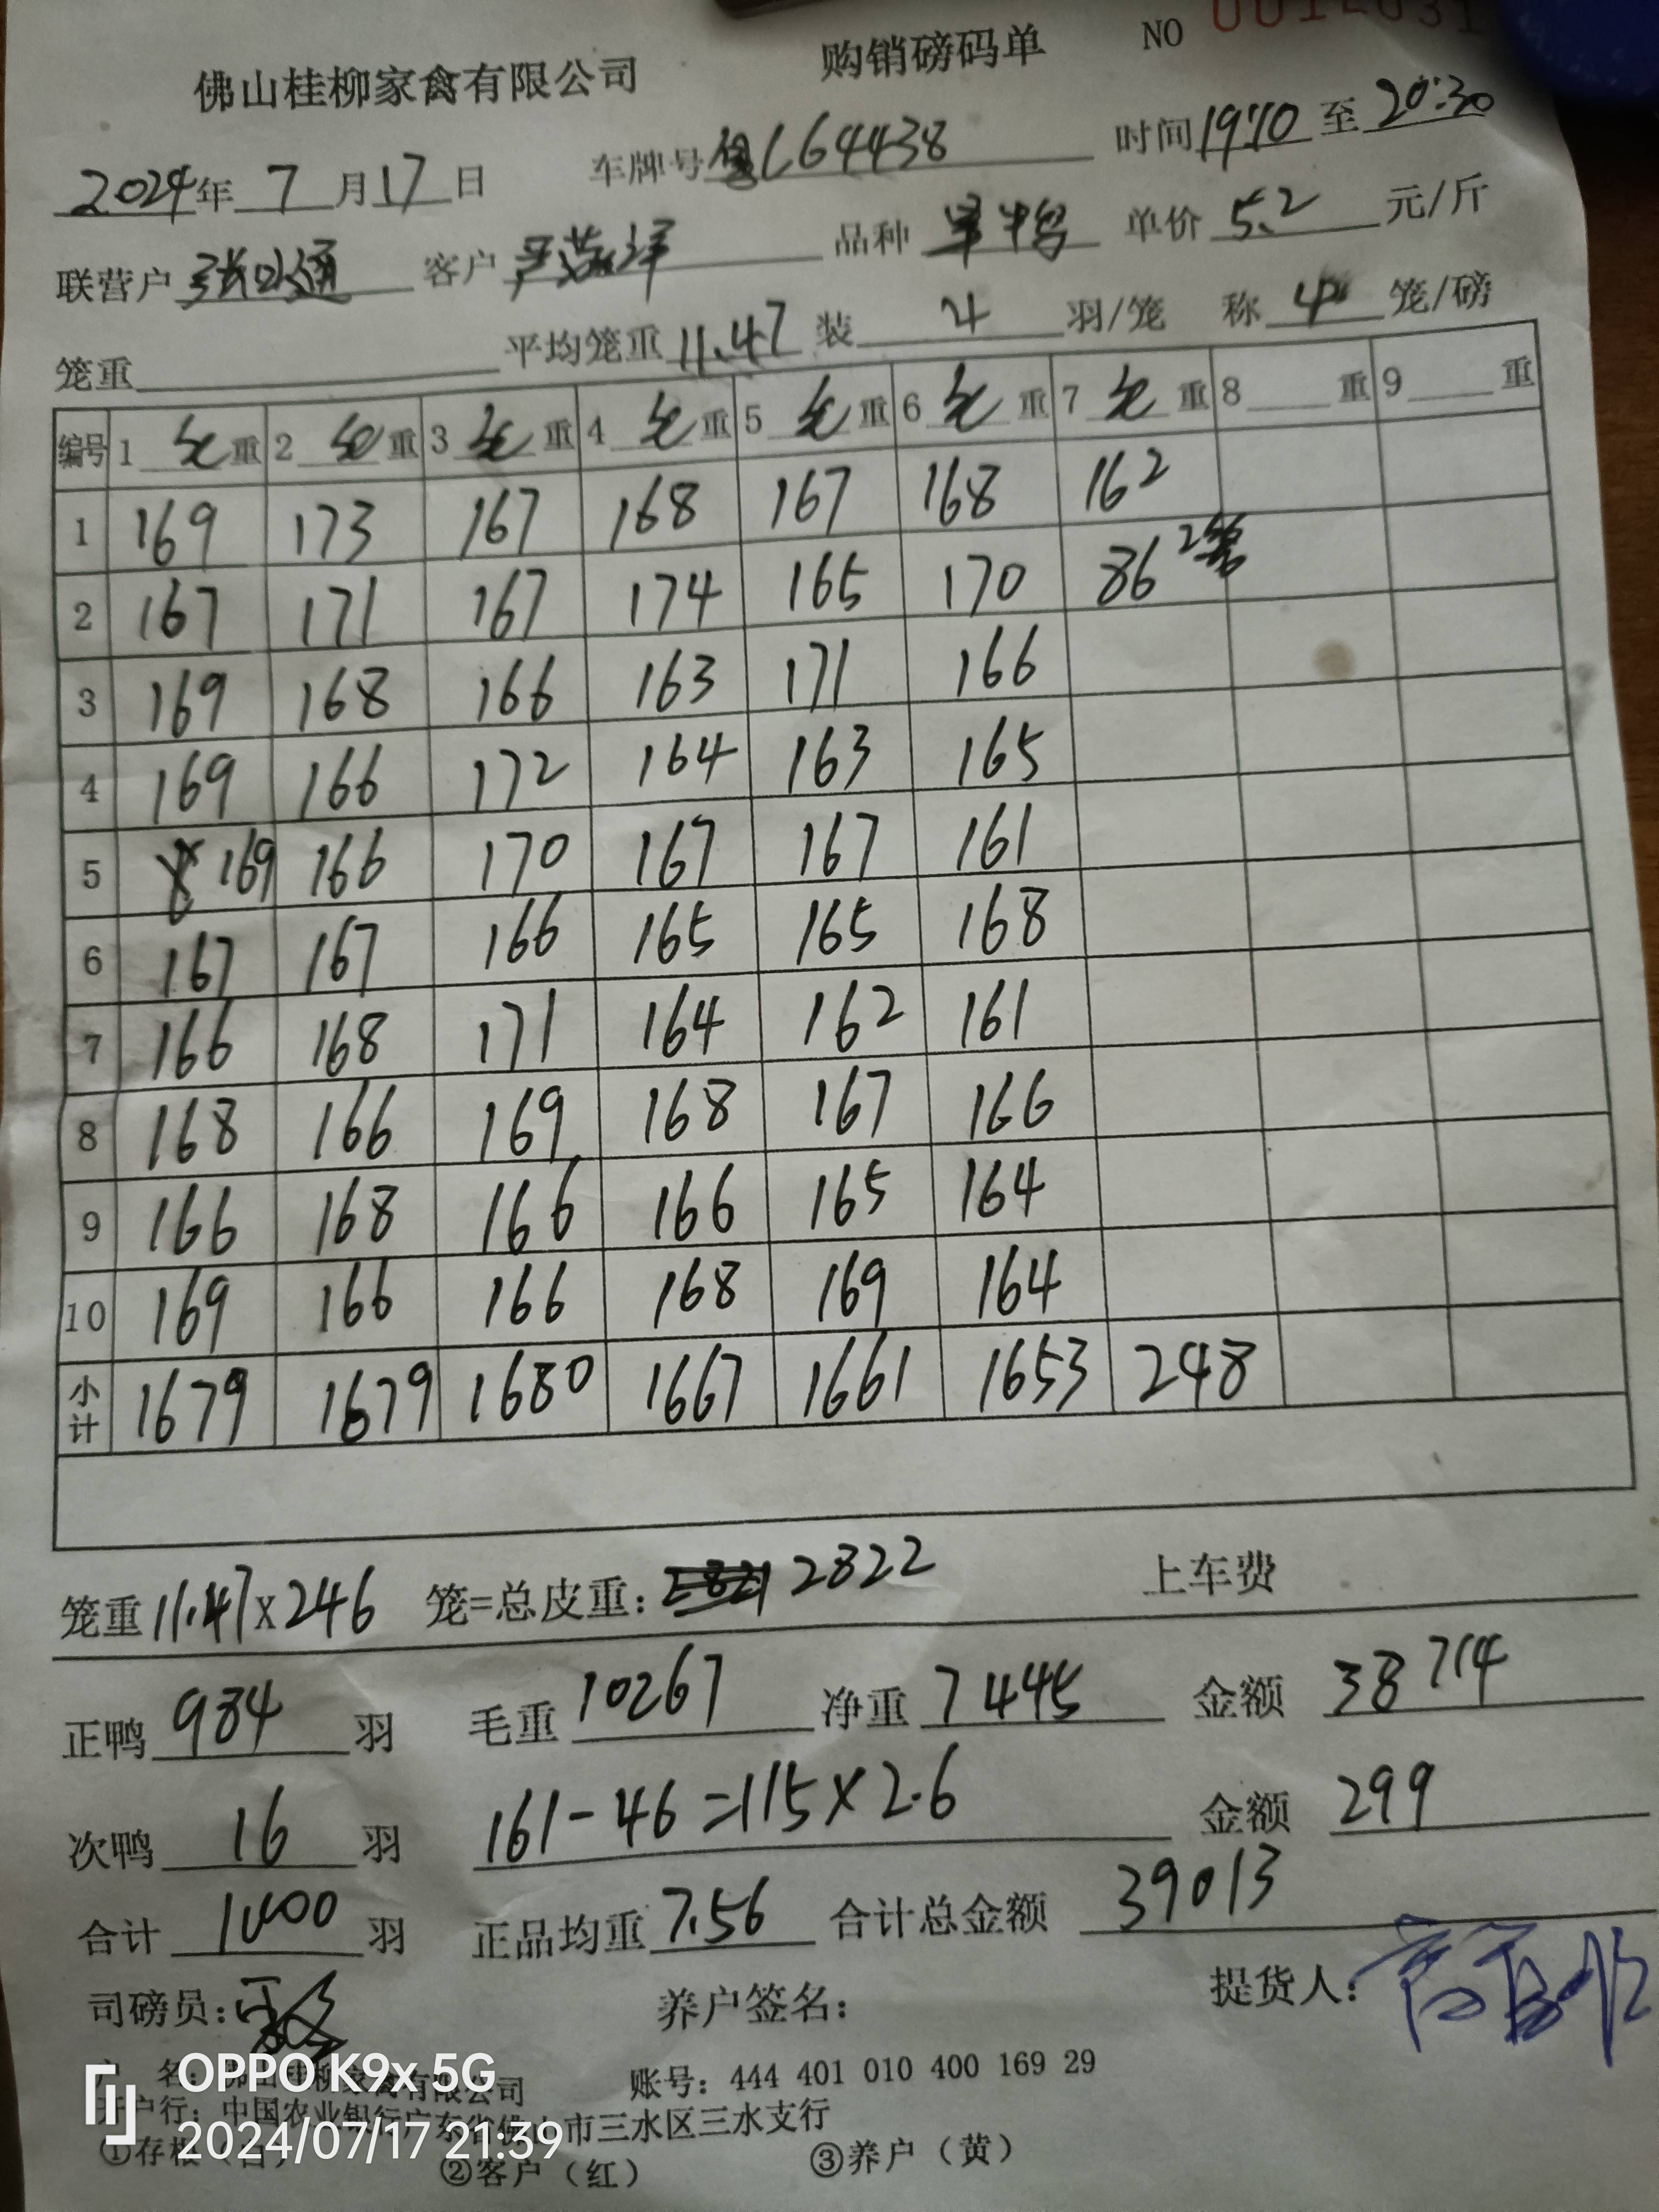 佛山桂柳家禽有限公司 购销磅码单 NO
2024年 7 月 17 日 车牌号 L64438 时间 19:10 至 20:30
联营户 张水通 客户 品种 单价 5.2 元/斤
笼重 平均笼重 11.47 装 4 羽/笼 称 4 笼/磅
编号 1 毛 重 2 毛 重 3 毛 重 4 毛 重 5 毛 重 6 毛 重 7 毛 重 8 重 9 重
1 169 173 167 168 167 168 162
2 167 171 167 174 165 170 86 2笼
3 169 168 166 163 171 166
4 169 166 172 164 163 165
5 169 166 170 167 167 161
6 167 167 166 165 165 168
7 166 168 171 164 162 161
8 168 166 169 168 167 166
9 166 168 166 166 165 164
10 169 166 166 168 169 164
小计 1679 1679 1680 1667 1661 1653 248
笼重 11.47 x 246 笼=总皮重: 2822 上车费
正鸭 984 羽 毛重 10267 净重 7445 金额 38714
次鸭 16 羽 161-46=115×2.6 金额 299
合计 1000 羽 正品均重 7.56 合计总金额 39013
司磅员: 养户签名: 提货人:
名: 佛山桂柳家禽有限公司 账号: 444 401 010 400 169 29
开户行: 中国农业银行广东省佛山市三水区三水支行
①存根(白) ②客户(红) ③养户(黄)
OPPO K9x 5G
2024/07/17 21:39